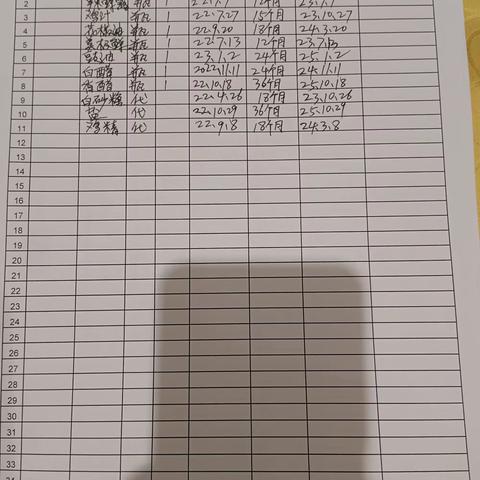 2 瓶 1
3 鸡汁 瓶 1 22.7.27 15个月 23.10.27
4 花椒油 瓶 1 22.9.20 18个月 24.3.20
5 瓶 1 22.7.13 12个月 23.7.13
6 豉油 瓶 1 23.1.2 24个月 25.1.2
7 白醋 瓶 1 2022.11.11 24个月 24.11.11
8 香醋 瓶 1 22.10.18 36个月 25.10.18
9 白砂糖 代 22.4.26 18个月 23.10.26
10 盐 代 22.10.29 36个月 25.10.29
11 鸡精 代 22.9.8 18个月 24.3.8
12
13
14
15
16
17
18
19
20
21
22
23
24
25
26
27
28
29
30
31
32
33
34